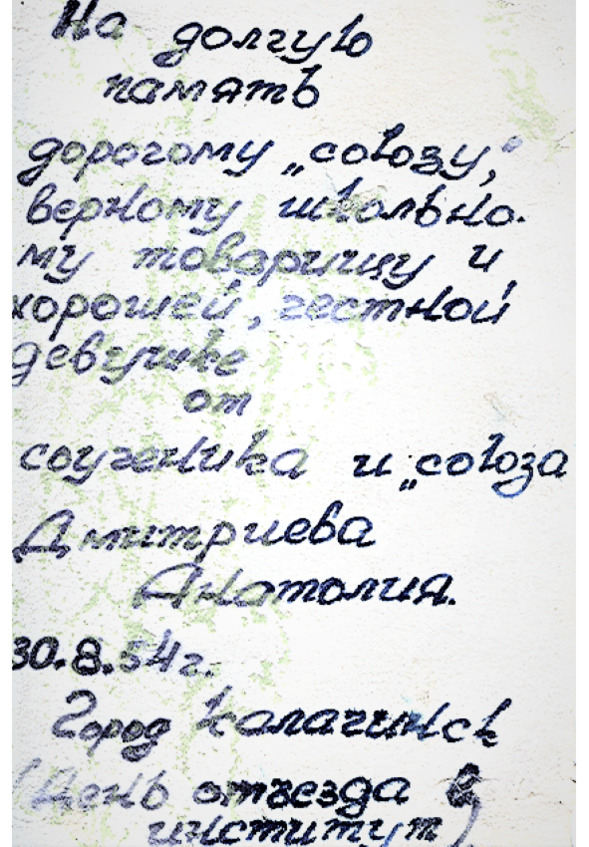 На долгую
память
дорогому „союзу,"
верному школьно-
му товарищу и
хорошей, честной
девушке
от
соученика и „союза
Дмитриева
Анатолия.
30.8.54г.
Город Калачинск
(День отъезда в
институт)